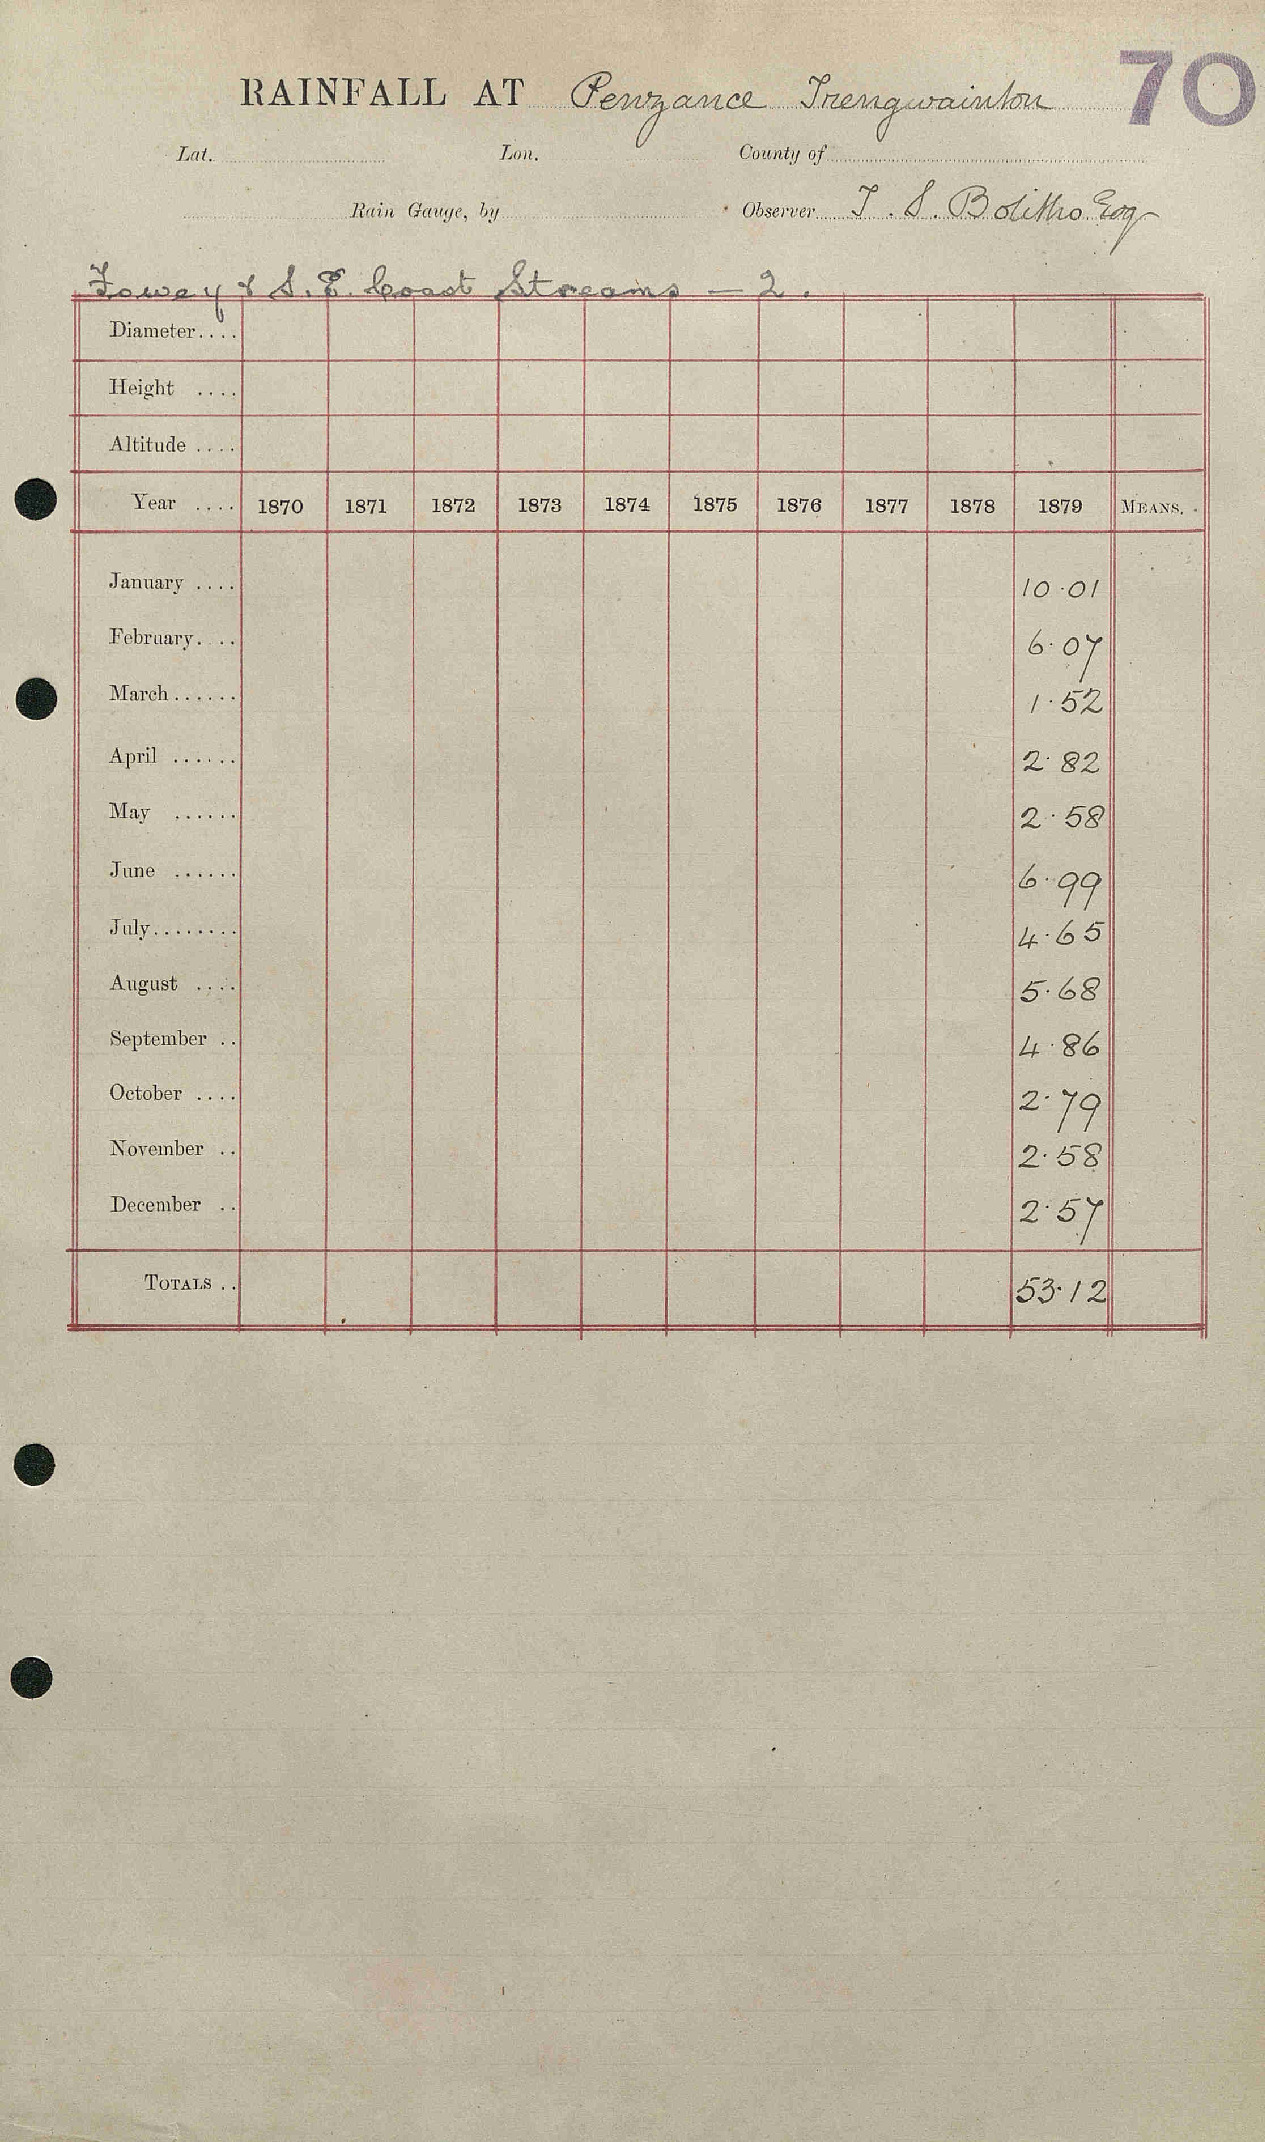 70
RAINFALL AT Penzance Trengwainton
Lat. Lon. County of
Rain Gauge, by Observer T. S. Bolitho Esq
Fowey & S. E. Coast Streams – 2.
Diameter....
Height ....
Altitude ....
Year .... 1870 1871 1872 1873 1874 1875 1876 1877 1878 1879 MEANS.
January .... 10.01
February. ... 6.07
March ...... 1.52
April ...... 2.82
May ...... 2.58
June ...... 6.99
July........ 4.65
August .... 5.68
September .. 4.86
October .... 2.79
November .. 2.58
December .. 2.57
TOTALS .. 53.12